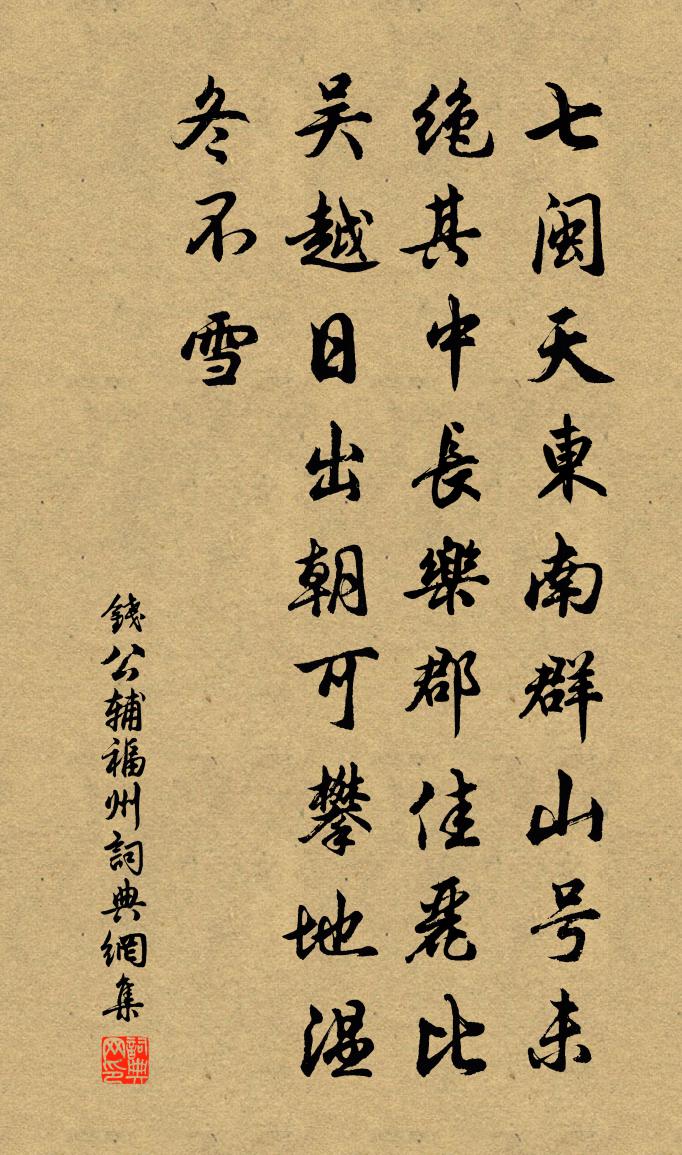 七闽天東南群山号未
絶其中長樂郡佳麗比
吴越日出朝可攀地温
冬不雪
錢公辅福州詞典網集
詞典网印